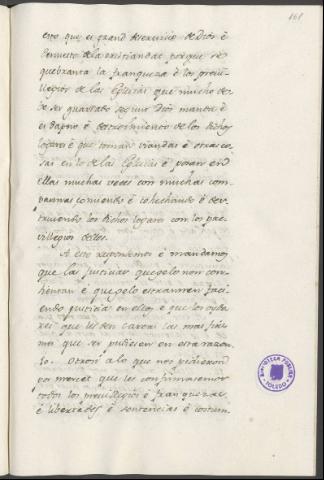 161
esto que es grand deservicio de Dios é
denuesto de la cristiandat porque se
quebranta la franqueza é los previ-
llegios de las Eglesias que mucho de-
be ser guardado segunt Dios manda é
es dapno é destroimiento de los dichos
logares é que toman viandas é otras co-
sas en lo de las Eglesias é posan en
ellas muchas veces con muchas com-
pannas comiendo é cohechando é des-
truiendo los dichos logares con los pre-
villegios dellos.
A esto respondemos é mandamos
que las justicias que gelo non con-
sientan é que gelo estrannen faci-
endo justicia en ellos é que los oydo-
res que les den cartas las mas firmes
que ser pudiesen en esta razon.
Io. Otrosi a lo que nos pidieron
por mercet que les confirmasemos
todos los previllegios é franquezas
é libertades é sentencias é costum-
BIBLIOTECA PUBLICA
TOLEDO